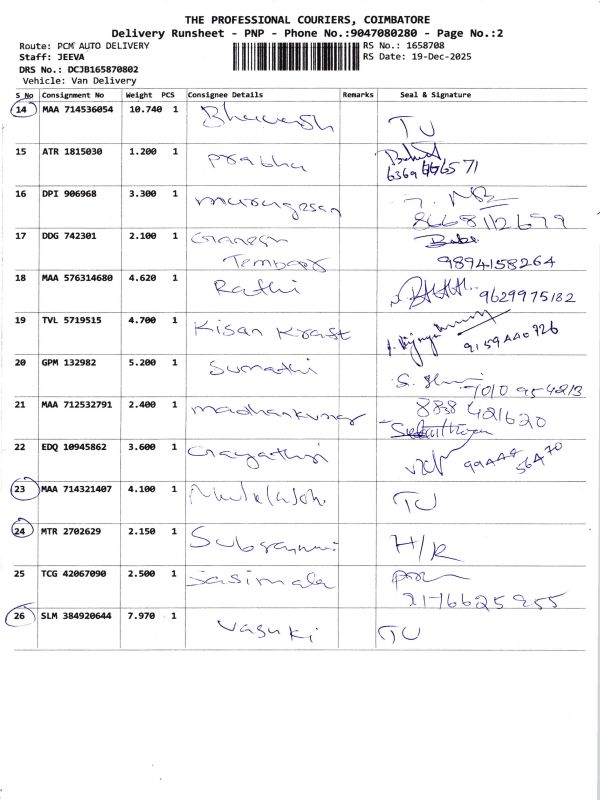 THE PROFESSIONAL COURIERS, COIMBATORE
Delivery Runsheet - PNP - Phone No.:9047080280 - Page No.:2
Route: PCM AUTO DELIVERY RS No.: 1658708
Staff: JEEVA RS Date: 19-Dec-2025
DRS No.: DCJB165870802
Vehicle: Van Delivery
S No Consignment No Weight PCS Consignee Details Remarks Seal & Signature
14 MAA 714536054 10.740 1 TU
15 ATR 1815030 1.200 1 Prabhu
16 DPI 906968 3.300 1 murugesan
17 DDG 742301 2.100 1 Ganesh
9894158264
18 MAA 576314680 4.620 1 Rathi 9629975182
19 TVL 5719515 4.700 1 Kisan Kraft
9159440726
20 GPM 132982 5.200 1 Sumathi
21 MAA 712532791 2.400 1 madhankumar
22 EDQ 10945862 3.600 1 Gayathri
23 MAA 714321407 4.100 1 TU
24 MTR 2702629 2.150 1 H/R
25 TCG 42067090 2.500 1 Sasimala
26 SLM 384920644 7.970 1 Vasuki TU